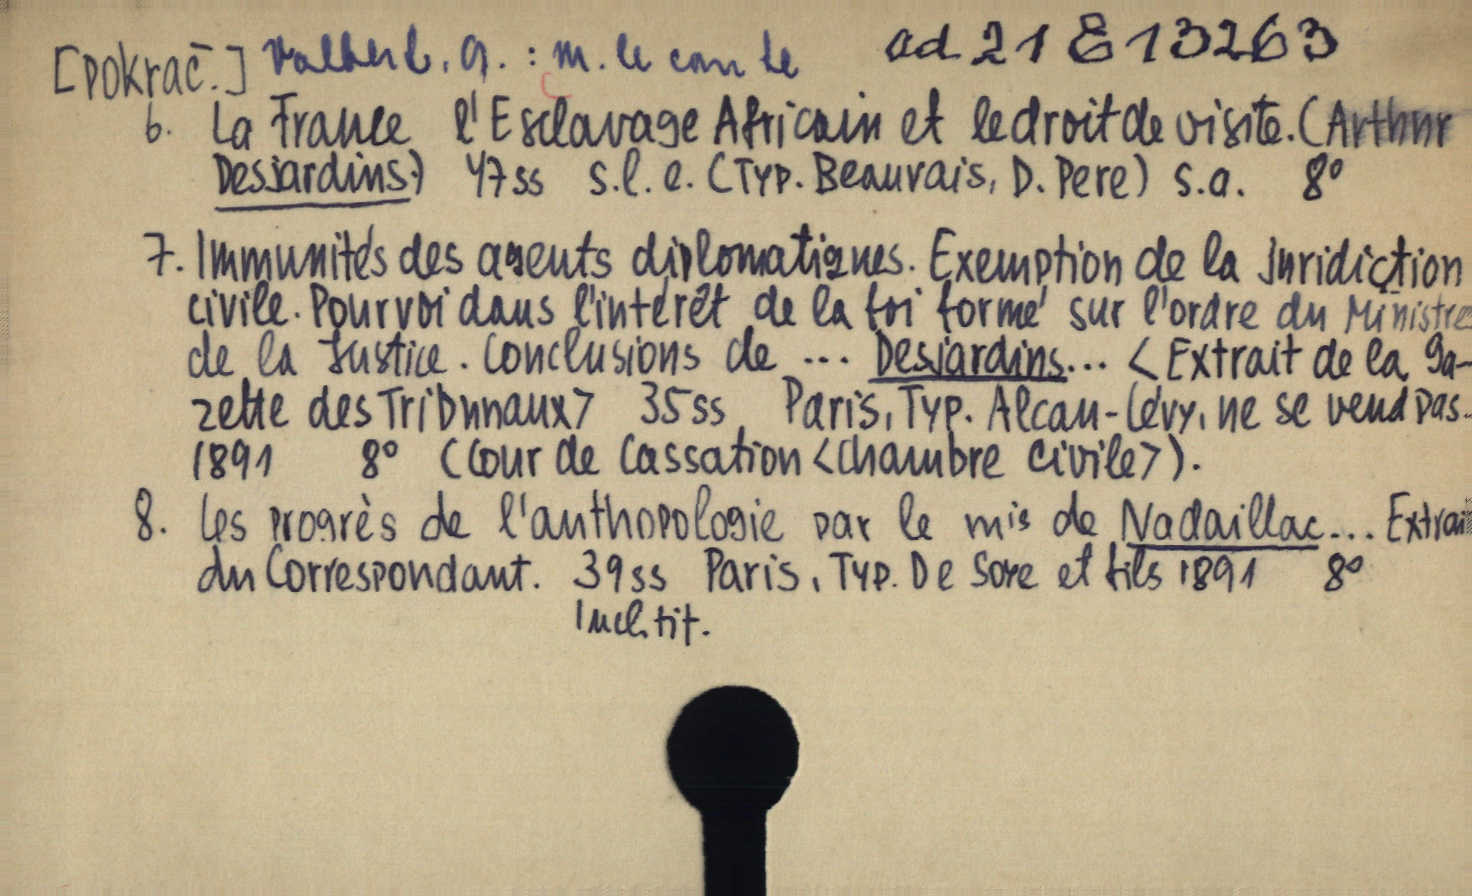 [pokrač.] Valbert, G. : M. le comte ad 21 E 13263
6. La France l'Esclavage Africain et le droit de visite. (Arthur
Desjardins.) 47ss s.l.e. (Typ. Beauvais, D. Pere) s.a. 8°
7. Immunités des agents diplomatiques. Exemption de la Juridiction
civile. Pourvoi dans l'intérêt de la loi formé sur l'ordre du Ministre
de la Justice. Conclusions de ... Desjardins... <Extrait de la Ga-
zette des Tribunaux> 35ss Paris, Typ. Alcan-Lévy, ne se vend pas.
1891 8° (Cour de Cassation <Chambre civile>).
8. Les progrès de l'anthopologie par le mis de Nadaillac... Extrait
du Correspondant. 39ss Paris, Typ. De Soye et fils 1891 8°